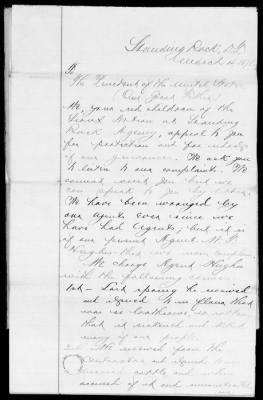 Standing Rock, D.T.
March 4, 18
To
The President of the United States
(Our Great Father)
We, your red children of the
Sioux Nation at Standing
Rock Agency, appeal to you
for protection and for redress
of our grievances. We ask you
to listen to our complaints. We
cannot reach you but we
can appeal to you by letter.
We have been wronged by
our agents ever since we
have had Agents; but it is
of our present Agent W. T.
Hughes that we now complain.
We charge Agent Hughes
with the following crimes
1st - Last spring he received
and issued to us flour that
was so loathsome, so rotten
that it sickened and killed
many of our people.
2nd - He received from the
Contractor and issued to us
cattle and when
accused of it and